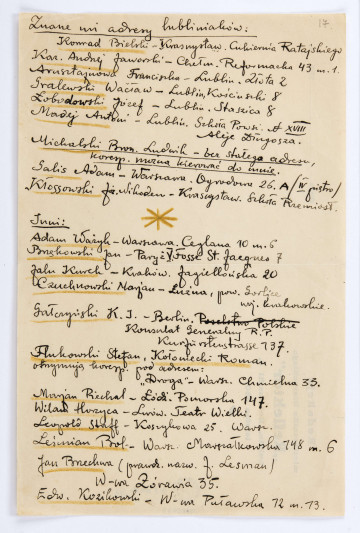 17
Znane mi adresy lubliniaków:
Konrad Bielski – Krasnystaw. Cukiernia Ratajskiego
Kaz. Andrzej Jaworski – Chełm. Reformacka 43 m. 1.
Arnsztajnowa Franciszka – Lublin. Złota 2
Gralewski Wacław – Lublin, Kościuszki 8
Łobodowski Józef – Lublin. Staszica 8
Madej Antoni – Lublin. Szkoła Powsz. XVIII
Aleje Długosza.
Michalski Bron. Ludwik – bez stałego adresu,
koresp. można kierować do mnie.
Salis Adam – Warszawa. Ogrodowa 26. A/IV piętro/
Kłossowski Nikodem – Krasnystaw. Szkoła Rzemiosł.
Inni:
Adam Ważyk – Warszawa. Ceglana 10 m. 6
Brzękowski Jan – Paryż V, Fossé St. Jacques 7
Jalu Kurek – Kraków. Jagiellońska 20
Czuchnowski Marjan – Łużna, pow. Gorlice
woj. krakowskie.
Gałczyński K. I. – Berlin. Poselstwo Polskie
Konsulat Generalny R.P.
Kurfürstenstrasse 137.
Flukowski Stefan, Kołoniecki Roman.
otrzymują koresp. pod adresem:
"Droga" – Warsz. Chmielna 35.
Marjan Piechal – Łódź. Pomorska 147.
Wilam Horzyca – Lwów. Teatr Wielki.
Leopold Staff – Koszykowa 25. Warsz.
Leśmian Bol. – Warsz. Marszałkowska 148 m. 6
Jan Brzechwa (prawdz. nazw. J. Lesman)
W-wa Żórawia 35.
Edw. Kozikowski – W-wa Puławska 12 m. 13.